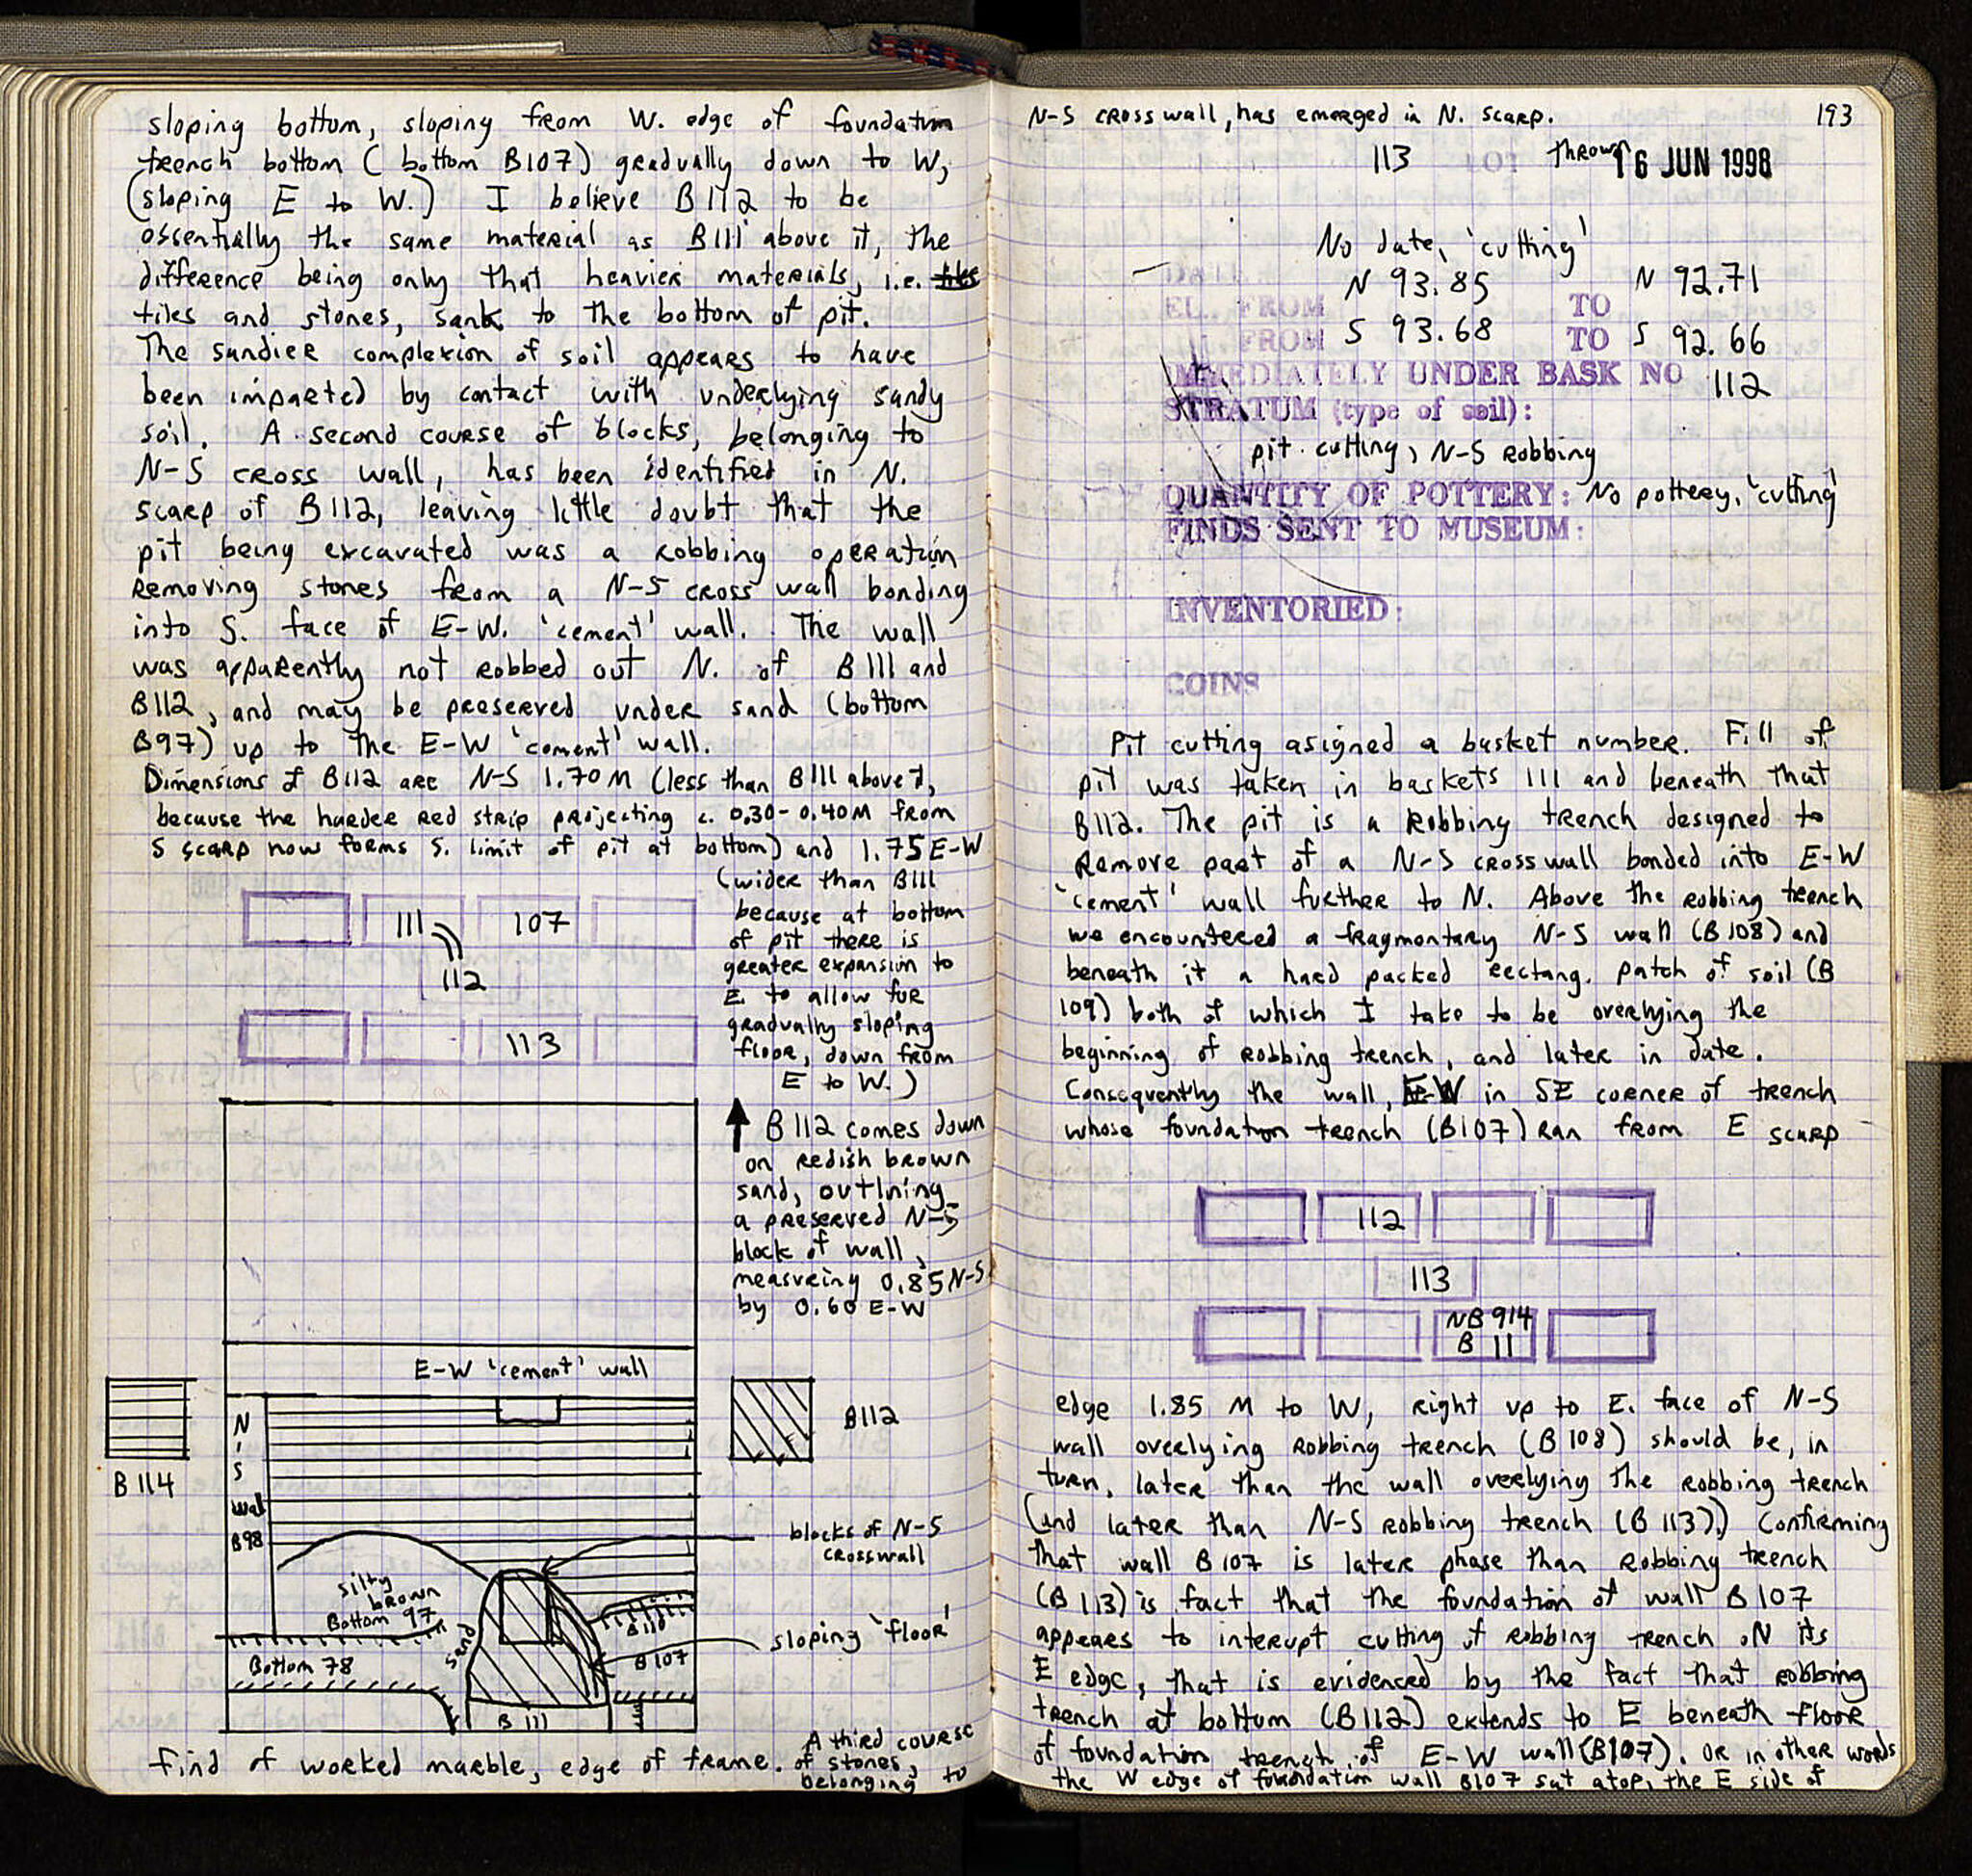 sloping bottom, sloping from W. edge of foundation
trench bottom (bottom B107) gradually down to W,
(sloping E to W.) I believe B112 to be
essentially the same material as B111 above it, the
difference being only that heavier materials, i.e. tiles
tiles and stones, sank to the bottom of pit.
The sandier complexion of soil appears to have
been imparted by contact with underlying sandy
soil. A second course of blocks, belonging to
N-S cross wall, has been identified in N.
scarp of B112, leaving little doubt that the
pit being excavated was a robbing operation
removing stones from a N-S cross wall bonding
into S. face of E-W. 'cement' wall. The wall
was apparently not robbed out N. of B111 and
B112, and may be preserved under sand (bottom
B97) up to the E-W 'cement' wall.
Dimensions of B112 are N-S 1.70 M (less than B111 above it,
because the harder red strip projecting c. 0.30-0.40M from
S scarp now forms S. limit of pit at bottom) and 1.75 E-W
(wider than B111
because at bottom
of pit there is
greater expansion to
E. to allow for
gradually sloping
floor, down from
E to W.)
111 107
112
113
B112 comes down
on redish brown
sand, outlning
a preserved N-S
block of wall,
measureing 0.85 N-S
by 0.60 E-W
E-W 'cement' wall
N-S wall
B98
B114
B112
blocks of N-S
crosswall
silty
brown
Bottom 97
sand
B110
sloping 'floor'
Bottom 78
B 107
B 111
find of worked marble, edge of frame. A third course
of stones,
belonging to
N-S cross wall, has emerged in N. scarp.
193
113 LOT Thrown 16 JUN 1998
No date, 'cutting'
N 93.85 N 92.71
EL. FROM TO
FROM S 93.68 TO S 92.66
IMMEDIATELY UNDER BASK NO 112
STRATUM (type of soil):
pit cutting, N-S Robbing
QUANTITY OF POTTERY: No pottery, 'cutting'
FINDS SENT TO MUSEUM:
INVENTORIED:
COINS
Pit cutting asigned a basket number. Fill of
pit was taken in baskets 111 and beneath that
B112. The pit is a Robbing trench designed to
Remove part of a N-S cross wall bonded into E-W
'cement' wall further to N. Above the robbing trench
we encountered a fragmentary N-S wall (B108) and
beneath it a hard packed rectang. patch of soil (B
109) both of which I take to be overlying the
beginning of robbing trench, and later in date.
Consequently the wall, E-W in SE corner of trench
whose foundation trench (B107) ran from E scarp
112
113
NB 914
B 11
edge 1.85 M to W, right up to E. face of N-S
wall overlying Robbing trench (B108) should be, in
turn, later than the wall overlying the robbing trench
(and later than N-S robbing trench (B113).) Confirming
that wall B107 is later phase than Robbing trench
(B113) is fact that the foundation of wall B107
appears to interupt cutting of robbing trench on its
E edge, that is evidenced by the fact that robbing
trench at bottom (B112) extends to E beneath floor
of foundation trench of E-W wall (B107). Or in other words
the W edge of foundation wall B107 sat atop, the E side of